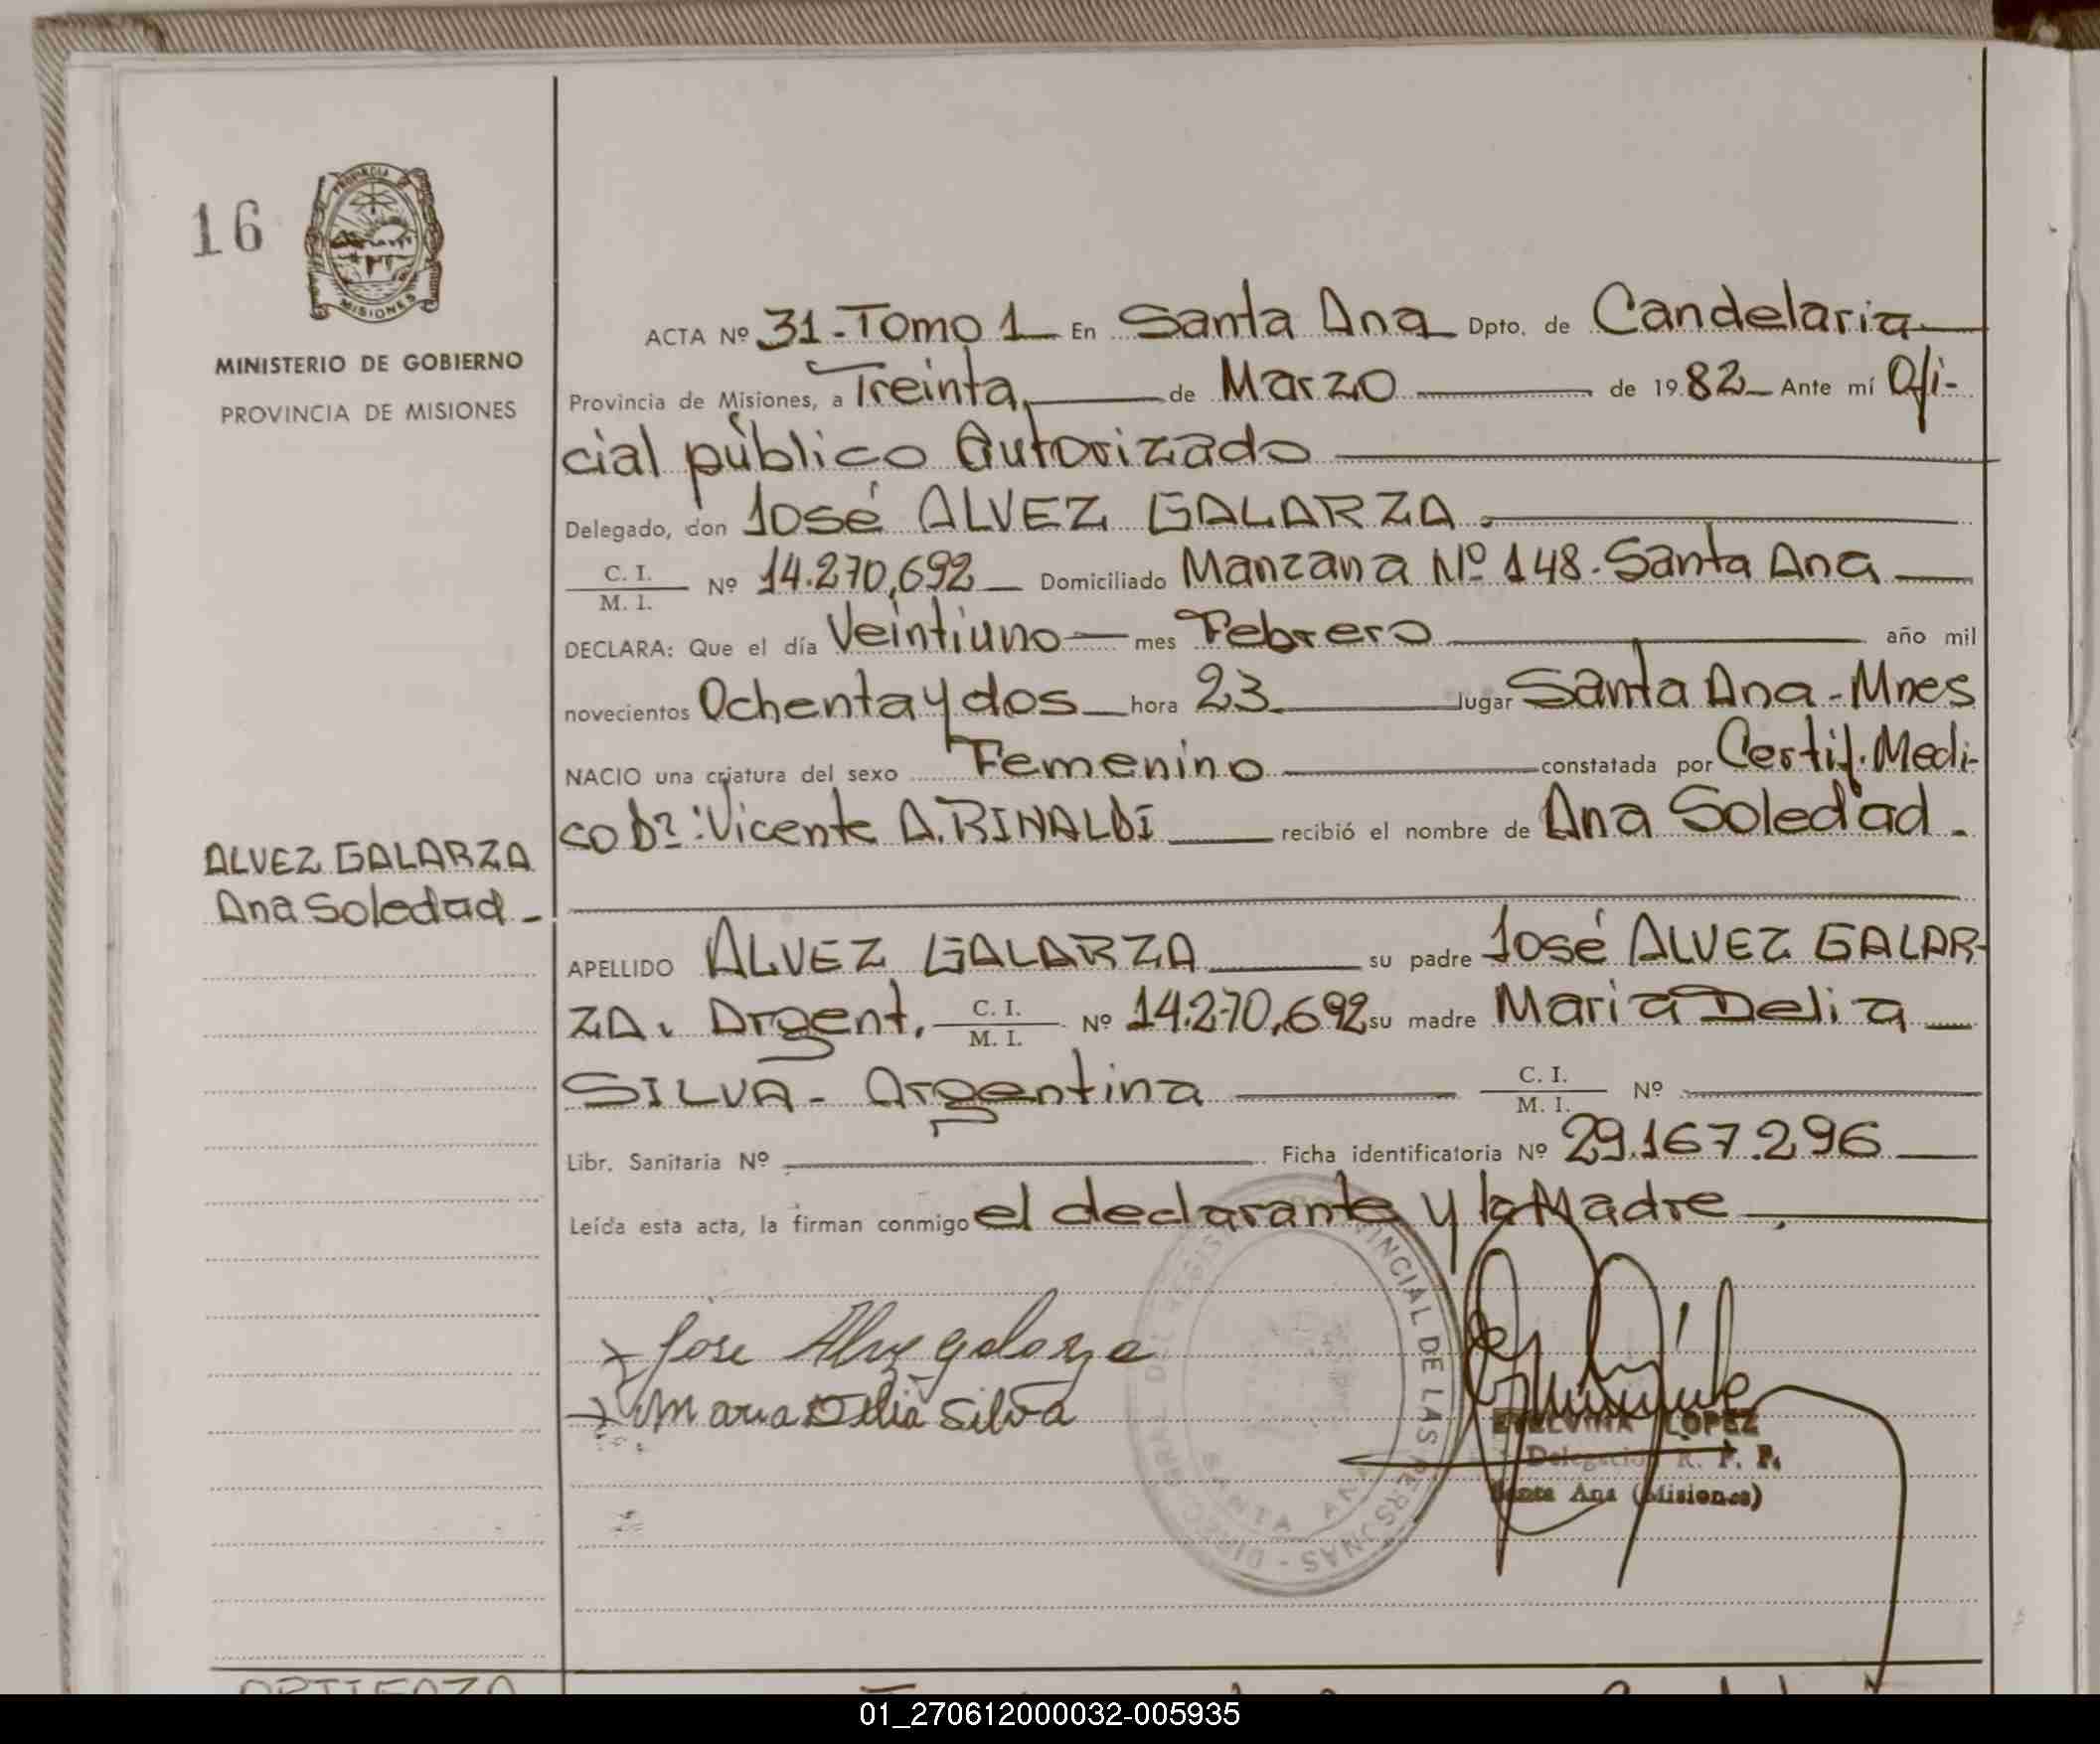 16
PROVINCIA DE
MISIONES
MINISTERIO DE GOBIERNO
PROVINCIA DE MISIONES
ALVEZ GALARZA
Ana Soledad -
ACTA Nº 31 - Tomo 1 En Santa Ana Dpto. de Candelaria
Provincia de Misiones, a Treinta, de Marzo de 1982 Ante mí Ofi-
cial público Autorizado
Delegado, don José ALVEZ GALARZA.
C. I.
M. I. Nº 14.270,692 Domiciliado Manzana Nº 148. Santa Ana
DECLARA: Que el día Veintiuno mes Febrero año mil
novecientos Ochenta y dos hora 23 lugar Santa Ana - Mnes
NACIO una criatura del sexo Femenino constatada por Certif. Medi-
co Dr: Vicente A. RINALDI recibió el nombre de Ana Soledad.
APELLIDO ALVEZ GALARZA su padre José ALVEZ GALAR-
ZA. Argent. C. I.
M. I. Nº 14.270,692 su madre Maria Delia
SILVA - Argentina C. I.
M. I. Nº
Libr. Sanitaria Nº Ficha identificatoria Nº 29.167.296
Leída esta acta, la firman conmigo el declarante y la Madre
Jose Alvez galarza
Maria Delia Silva
PROVINCIAL DE LAS PERSONAS
SANTA ANA
ETELVINA LOPEZ
Delegación R. P. P.
Santa Ana (Misiones)
01_270612000032-005935